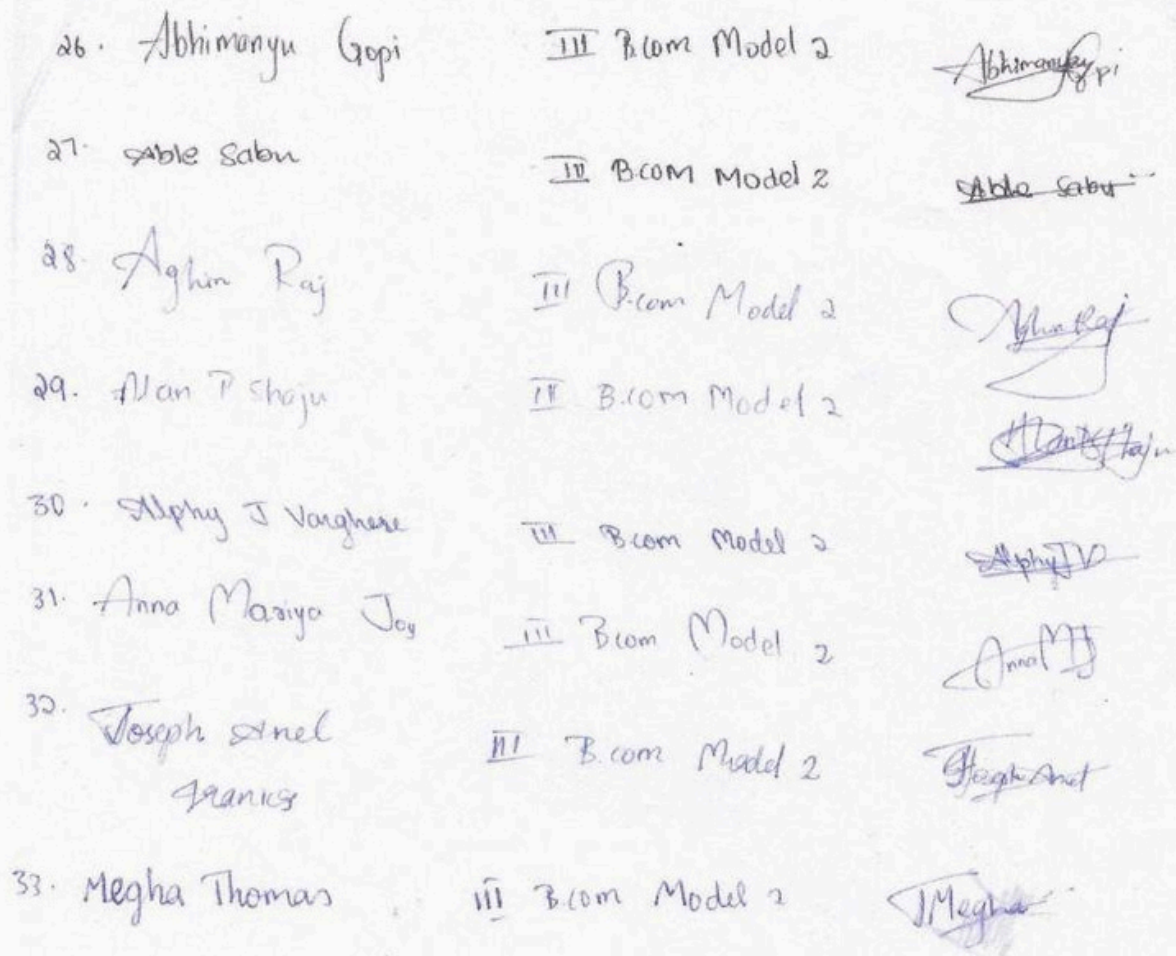 26. Abhimanyu Gopi III B.com Model 2 Abhimanyu Gopi
27. Able Sabu III B.com Model 2 Able Sabu
28. Aghin Raj III B.com Model 2 Aghin Raj
29. Alan P Shaju III B.com Model 2 Alan P Shaju
30. Alphy J Varghese III B.com Model 2 Alphy J V
31. Anna Mariya Joy III B.com Model 2 Anna M J
32. Joseph Anel III B.com Model 2
Franics
33. Megha Thomas III B.com Model 2 Megha